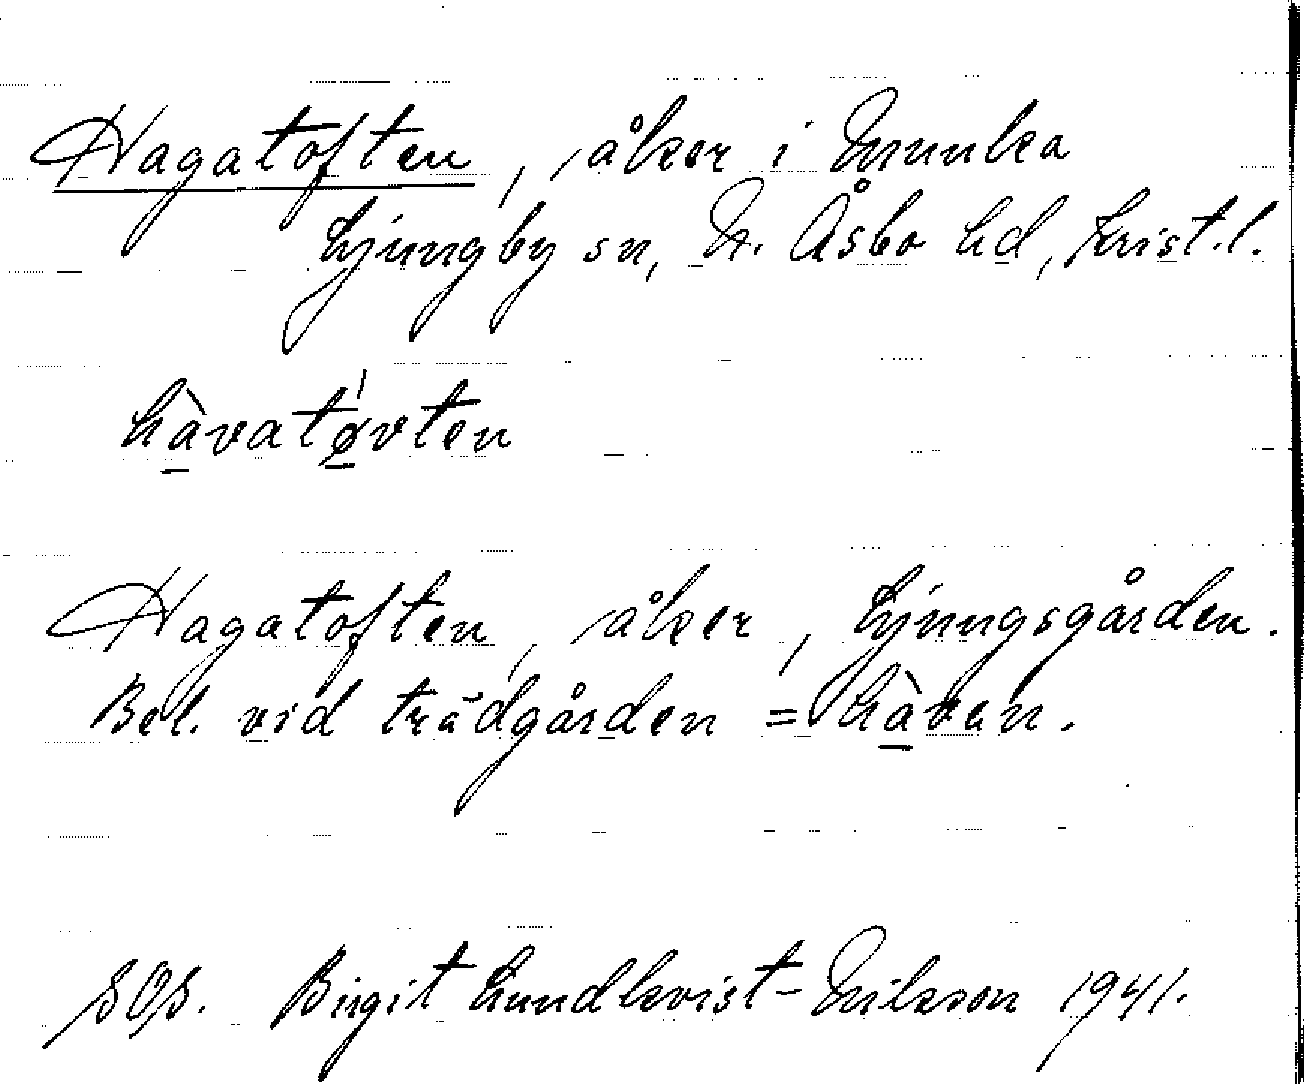 Hagatoften, åker i Munka
Ljungby sn, N. Åsbo hd, Krist.l.
hàvatǿvten
Hagatoften, åker, Ljungsgården.
Bel. vid trädgården = hàven.
SOS. Birgit Lundkvist-Nilsson 1941.